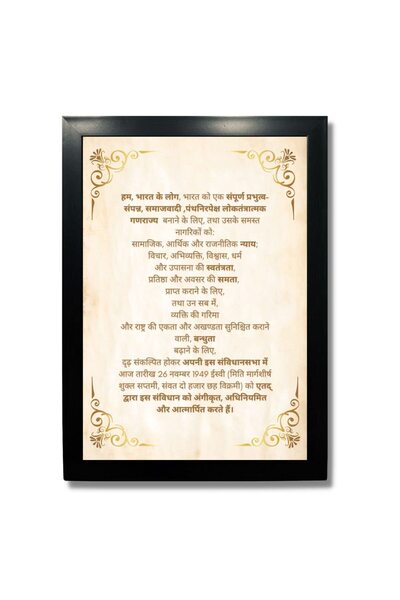 हम, भारत के लोग, भारत को एक संपूर्ण प्रभुत्व-
संपन्न, समाजवादी ,पंथनिरपेक्ष लोकतंत्रात्मक
गणराज्य बनाने के लिए, तथा उसके समस्त
नागरिकों को:
सामाजिक, आर्थिक और राजनीतिक न्याय;
विचार, अभिव्यक्ति, विश्वास, धर्म
और उपासना की स्वतंत्रता,
प्रतिष्ठा और अवसर की समता,
प्राप्त कराने के लिए,
तथा उन सब में,
व्यक्ति की गरिमा
और राष्ट्र की एकता और अखण्डता सुनिश्चित कराने
वाली, बन्धुता
बढ़ाने के लिए,
दृढ़ संकल्पित होकर अपनी इस संविधानसभा में
आज तारीख 26 नवम्बर 1949 ईस्वी (मिति मार्गशीर्ष
शुक्ल सप्तमी, संवत दो हजार छह विक्रमी) को एतद्
द्वारा इस संविधान को अंगीकृत, अधिनियमित
और आत्मार्पित करते हैं।